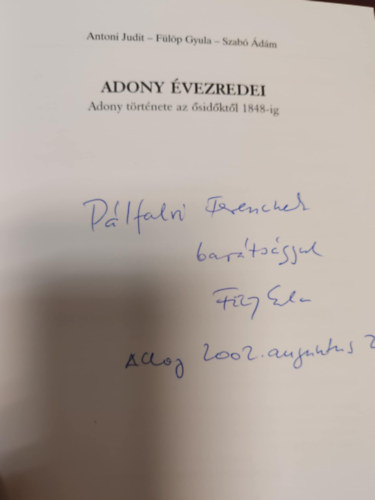 Antoni Judit – Fülöp Gyula – Szabó Ádám
ADONY ÉVEZREDEI
Adony története az ősidőktől 1848-ig
Pálfalvi Ferencnek
barátsággal
2002. augusztus 2